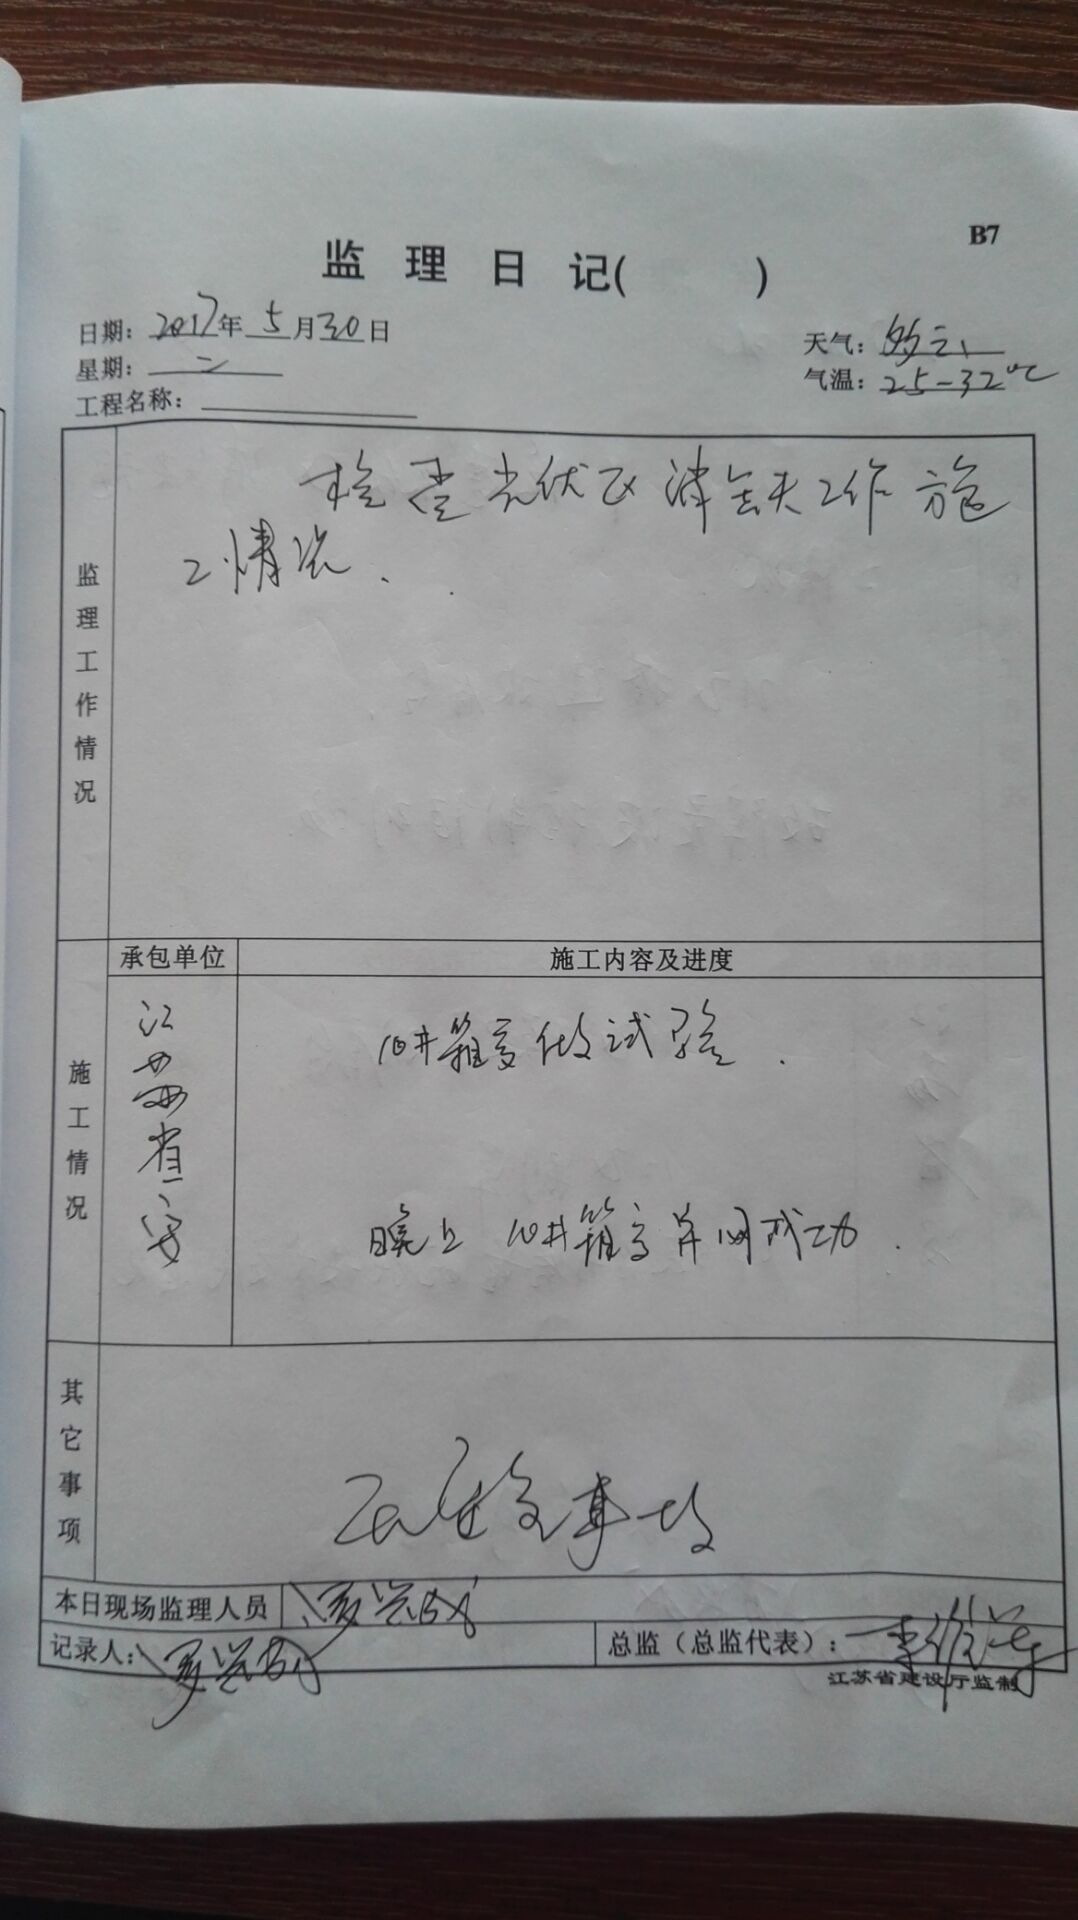 B7
监 理 日 记( )
日期: 2017年 5月30日
天气: 多云
星期: 二
气温: 25-32℃
工程名称:
监理工作情况
检查光伏区消缺工作施
工情况.
承包单位
施工内容及进度
施工情况
江苏省安
10#箱变做试验.
晚上 10#箱变并网成功.
其它事项
事故
本日现场监理人员
记录人:
总监（总监代表）:
江苏省建设厅监制